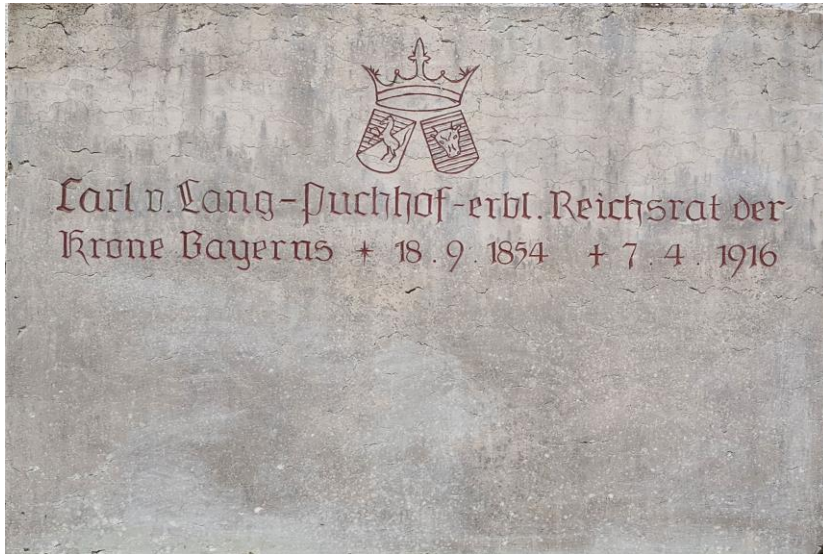 Carl v. Lang-Puchhof-erbl. Reichsrat der
Krone Bayerns * 18.9.1854 + 7.4.1916